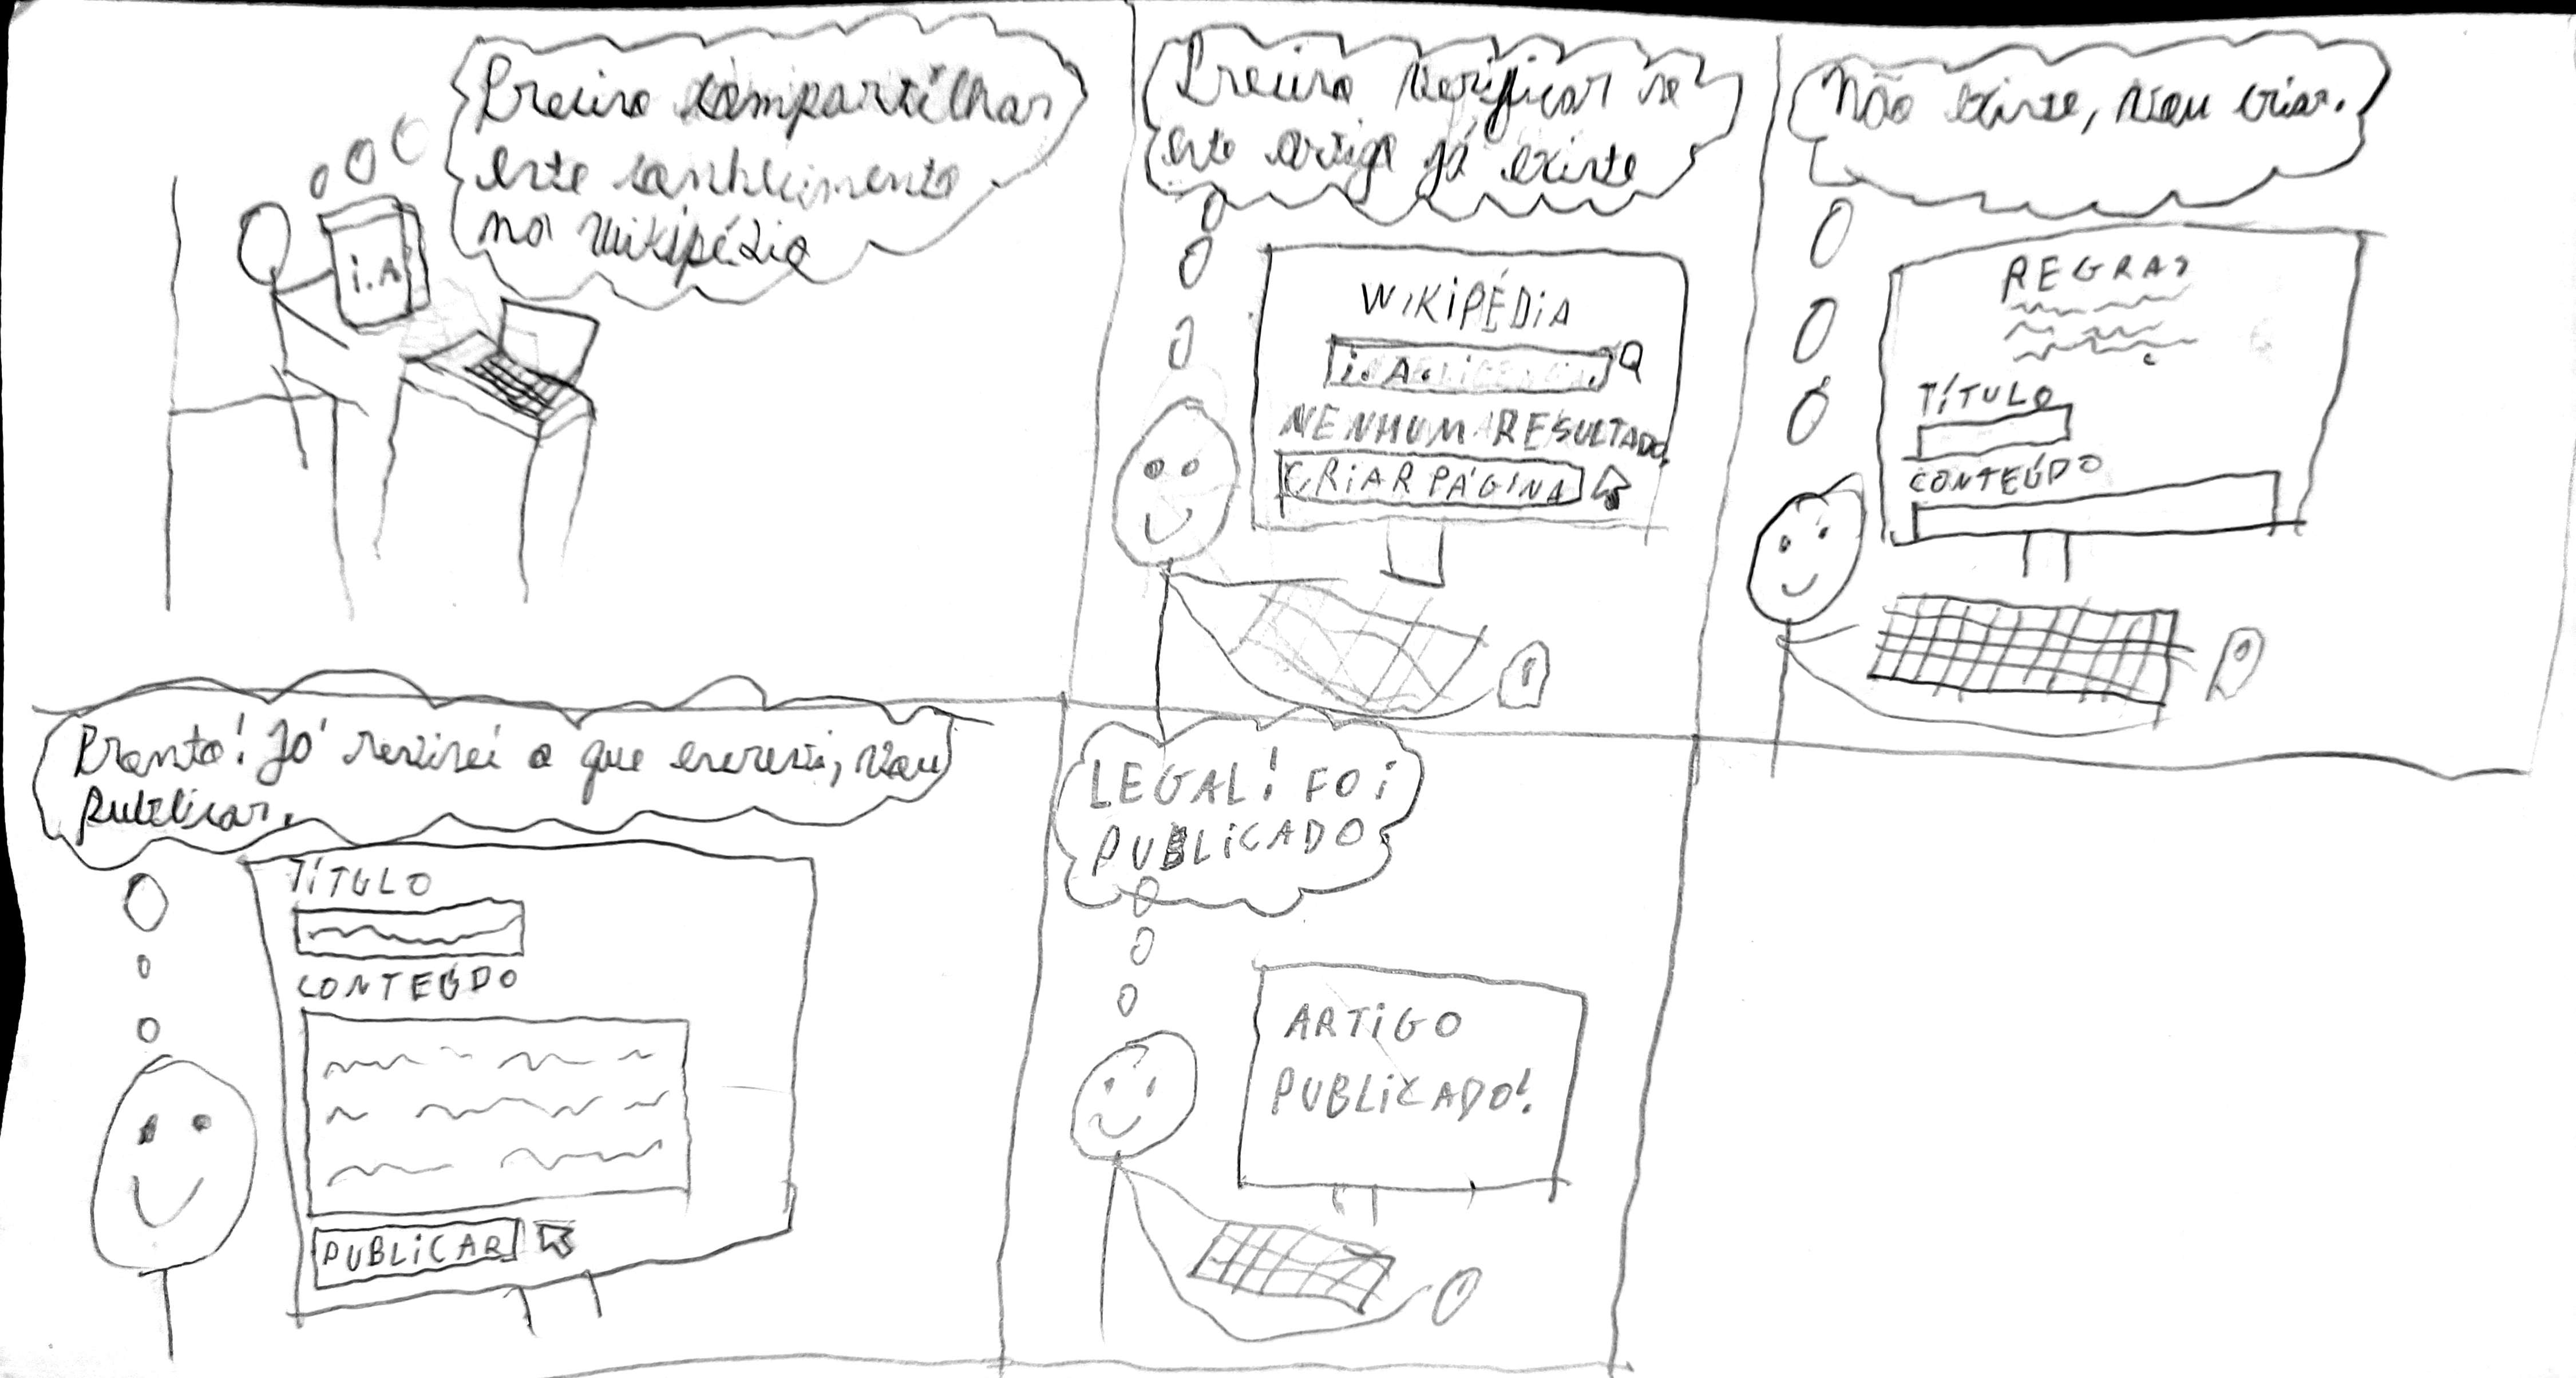 Preciso compartilhar
este conhecimento
na Wikipédia
i.A
Preciso verificar se
este artigo já existe
WIKIPÉDIA
i.A.
NENHUM RESULTADO.
CRIAR PÁGINA
Não existe, vou criar.
REGRAS
TÍTULO
CONTEÚDO
Pronto! Já revisei o que escrevi, vou
publicar.
TÍTULO
CONTEÚDO
PUBLICAR
LEGAL! FOI
PUBLICADO
ARTIGO
PUBLICADO!